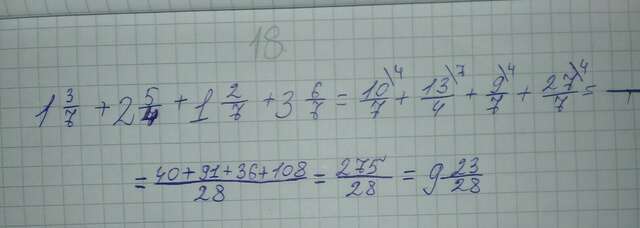 18
1 3/7 + 2 5/4 + 1 2/7 + 3 6/7 = 10\4/7 + 13\7/4 + 9\4/7 + 27\4/7 =
= 40+91+36+108/28 = 275/28 = 9 23/28